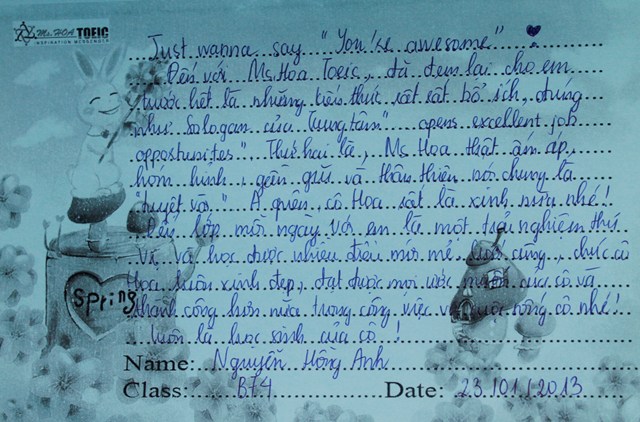 Ms. HOA TOEIC
INSPIRATION MESSENGER
Just wanna say "You're awesome" ♥
Đến với Ms Hoa Toeic, đã đem lại cho em
trước hết là những kiến thức rất rất bổ ích, đúng
như Sologan của Trung tâm "opens excellent job
oppostunites" Thứ hai là, Ms Hoa thật ấm áp,
hóm hỉnh, gần gũi và thân thiện nói chung là
tuyệt vời" À quên, cô Hoa rất là xinh nữa nhé!
Đến lớp mỗi ngày với em là một trải nghiệm thú
vị và học được nhiều điều mới mẻ. cuối cùng, chúc cô
Hoa luôn xinh đẹp, đạt được mọi ước muốn của cô và
thành công hơn nữa trong công việc và cuộc sống cô nhé!
luôn là học sinh của cô!
Spring
Name: Nguyễn Hồng Anh
Class: B74
Date: 23/01/2013